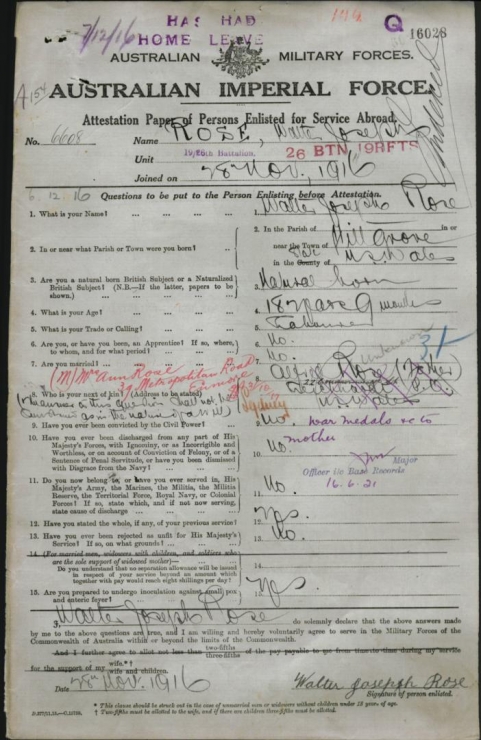 7/12/16
HAS HAD
HOME LEAVE
Q
16028
AUSTRALIAN MILITARY FORCES.
AUSTRALIAN IMPERIAL FORCE
Attestation Paper of Persons Enlisted for Service Abroad.
No. 6608 Name ROSE, Walter Joseph
Unit 19/26th Battalion. 26 BTN 19RFTS
Joined on 28 Nov. 1916
6.12.16 Questions to be put to the Person Enlisting before Attestation.
1. What is your Name? ... 1. Walter Joseph Rose
2. In or near what Parish or Town were you born? ... 2. In the Parish of Hill Grove in or
near the Town of
in the County of N.S. Wales
3. Are you a natural born British Subject or a Naturalized British Subject? (N.B.—If the latter, papers to be shown.) ... 3. Natural born
4. What is your Age? ... 4. 18 years 9 months
5. What is your Trade or Calling? ... 5. Labourer
6. Are you, or have you been, an Apprentice? If so, where, to whom, and for what period? ... 6. No.
7. Are you married? ... 7. No.
(M) Mrs Ann Rose
39 Metropolitan Road
Enmore
Sydney
8. Who is your next of kin? (Address to be stated) 8. Rose (Father)
N.S. Wales
9. Have you ever been convicted by the Civil Power? ... 9. No.
war medals &c to
mother
Major
Officer i/c Base Records
16.6.21
10. Have you ever been discharged from any part of His Majesty's Forces, with Ignominy, or as Incorrigible and Worthless, or on account of Conviction of Felony, or of a Sentence of Penal Servitude, or have you been dismissed with Disgrace from the Navy? ... 10. No.
11. Do you now belong to, or have you ever served in, His Majesty's Army, the Marines, the Militia, the Militia Reserve, the Territorial Force, Royal Navy, or Colonial Forces? If so, state which, and if not now serving, state cause of discharge ... 11. No.
12. Have you stated the whole, if any, of your previous service? 12. Yes.
13. Have you ever been rejected as unfit for His Majesty's Service? If so, on what grounds? ... 13. No.
14. (For married men, widowers with children, and soldiers who are the sole support of widowed mother)—
Do you understand that no separation allowance will be issued in respect of your service beyond an amount which together with pay would reach eight shillings per day? 14.
15. Are you prepared to undergo inoculation against small pox and enteric fever? ... 15. Yes
I, Walter Joseph Rose do solemnly declare that the above answers made
by me to the above questions are true, and I am willing and hereby voluntarily agree to serve in the Military Forces of the
Commonwealth of Australia within or beyond the limits of the Commonwealth.
And I further agree to allot not less than two-fifths three-fifths of the pay payable to me from time to time during my service
for the support of my wife.*† wife and children.
Date 28 Nov. 1916
Walter Joseph Rose
Signature of person enlisted.
* This clause should be struck out in the case of unmarried men or widowers without children under 18 years of age.
† Two-fifths must be allotted to the wife, and if there are children three-fifths must be allotted.